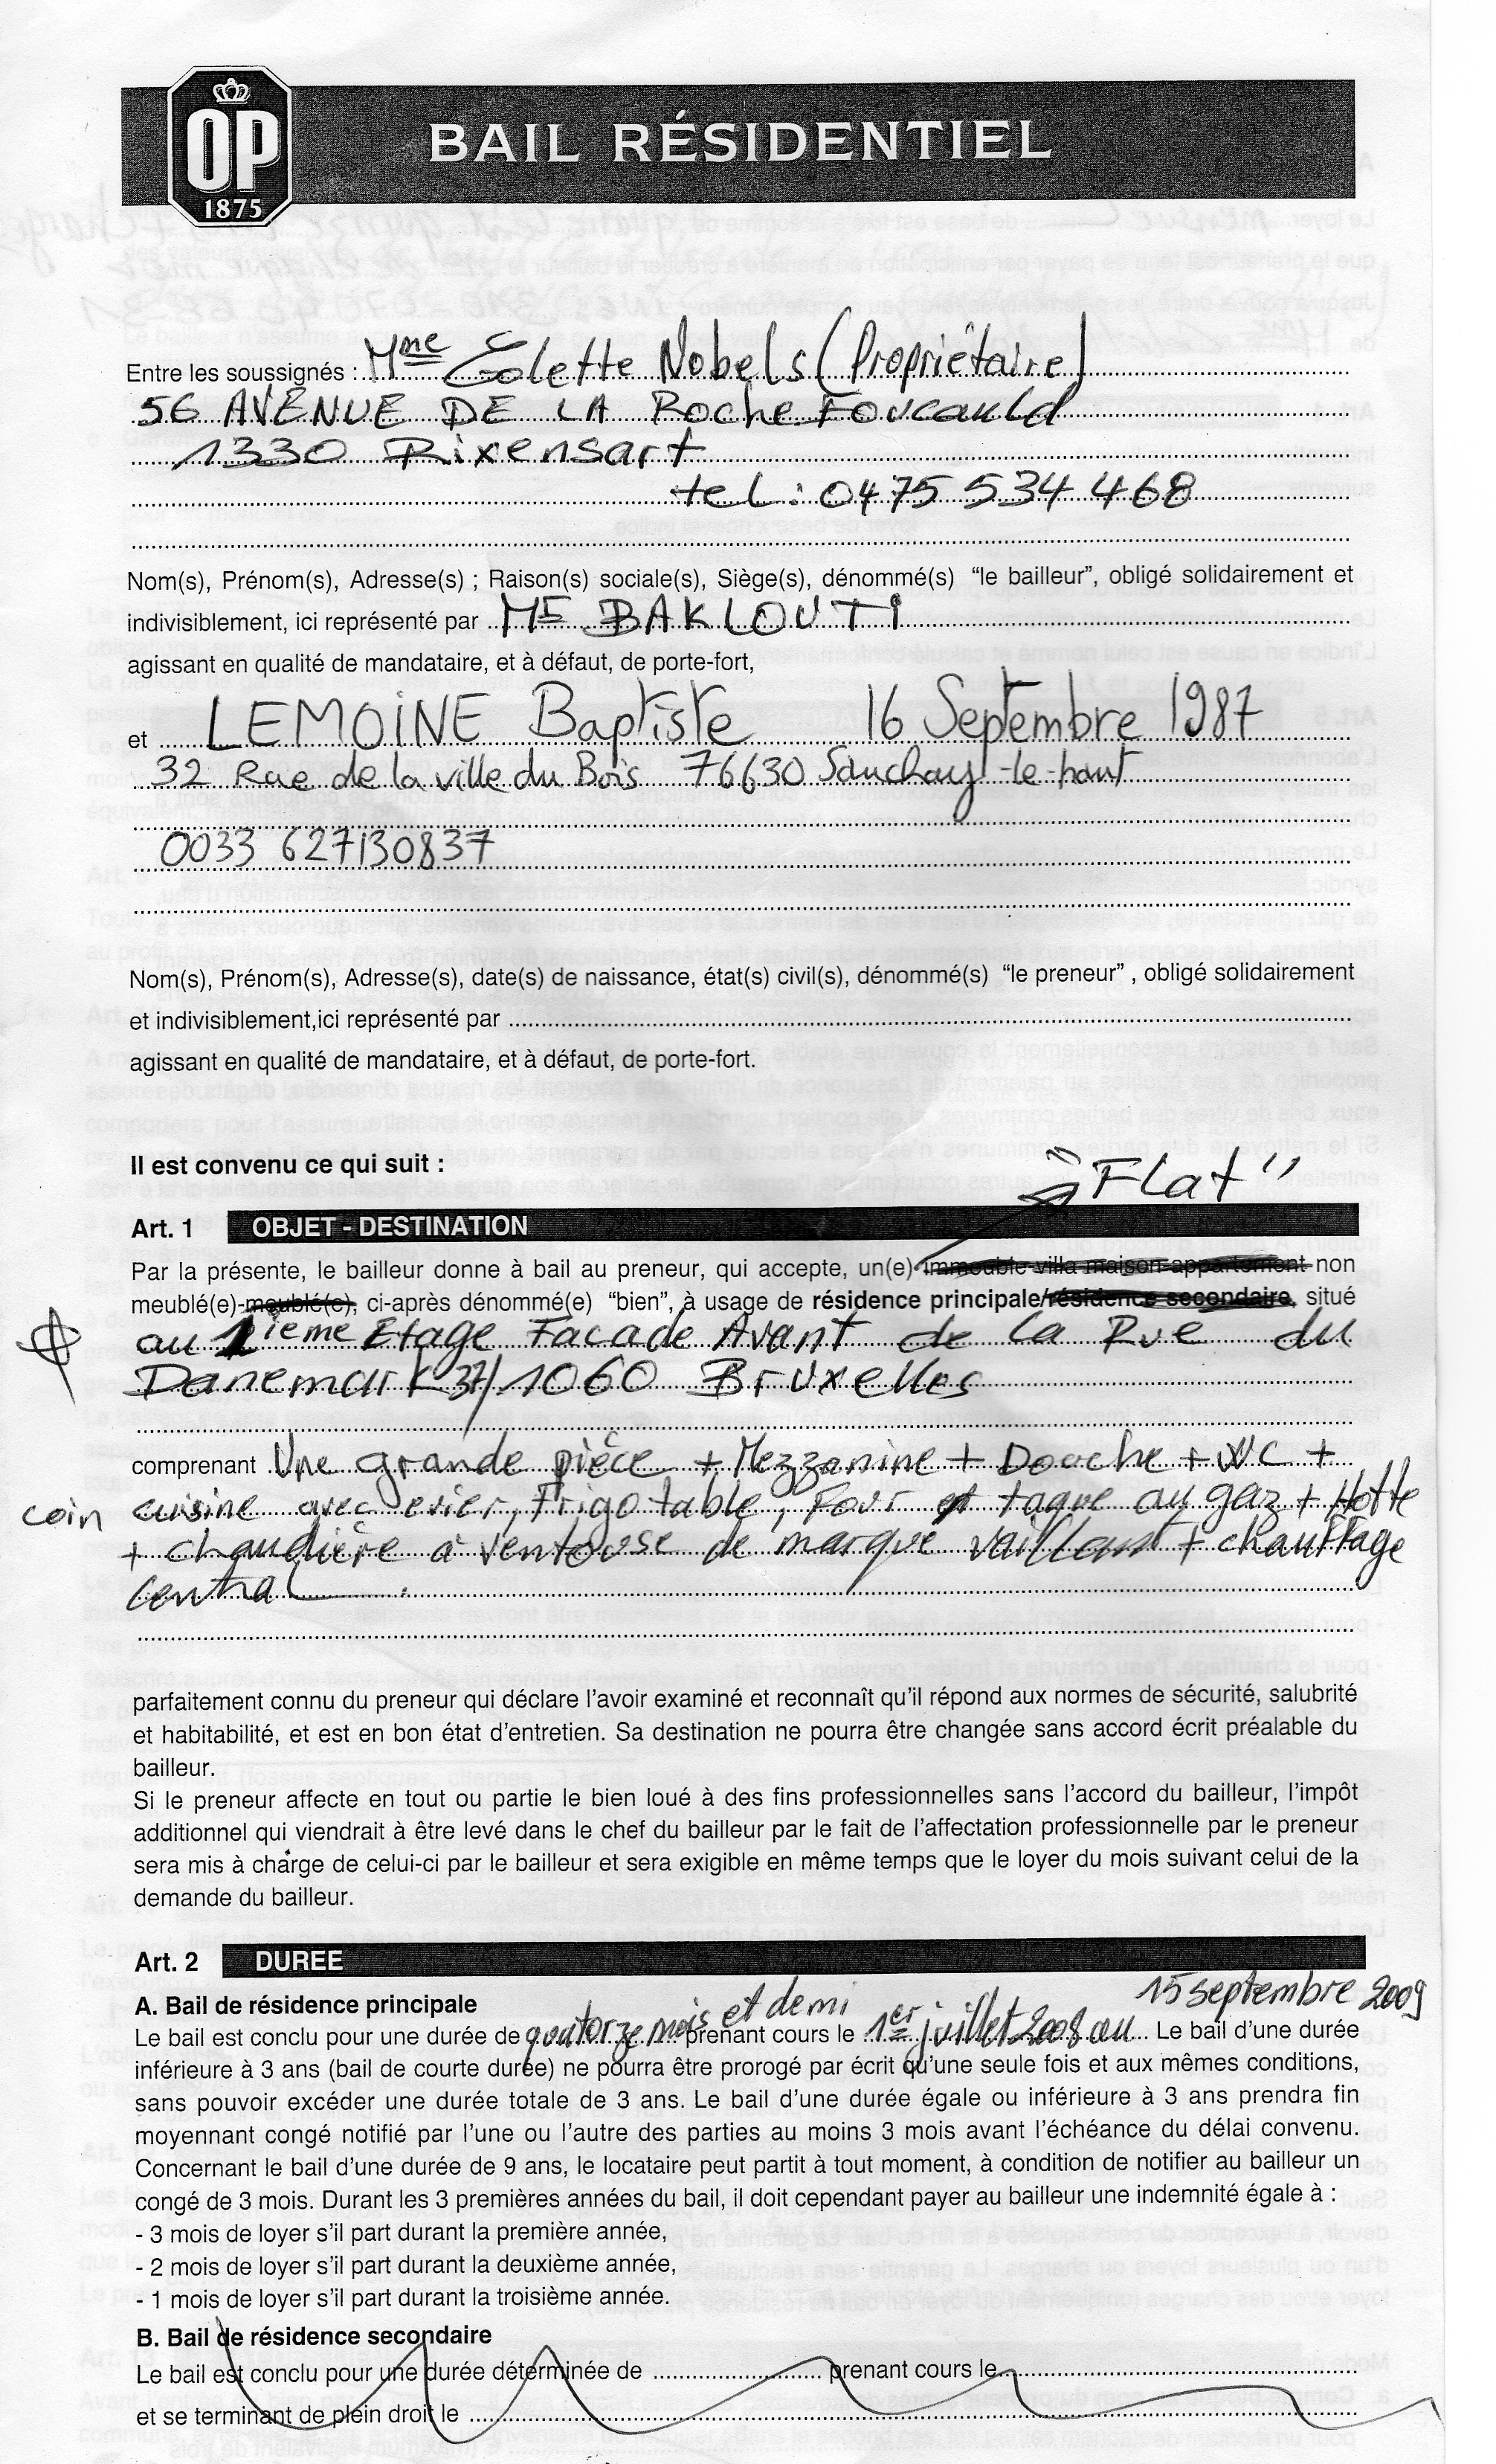 OP
1875
BAIL RÉSIDENTIEL
Entre les soussignés : Mme Colette Nobels (Propriétaire)
56 AVENUE DE LA RocheFoucauld
1330 Rixensart
tel : 0475 534 468
Nom(s), Prénom(s), Adresse(s) ; Raison(s) sociale(s), Siège(s), dénommé(s) “le bailleur”, obligé solidairement et
indivisiblement, ici représenté par Mr BAKLOUTI
agissant en qualité de mandataire, et à défaut, de porte-fort,
et LEMOINE Baptiste 16 Septembre 1987
32 Rue de la ville du Bois 76630 Sauchay-le-haut
0033 627130837
Nom(s), Prénom(s), Adresse(s), date(s) de naissance, état(s) civil(s), dénommé(s) “le preneur” , obligé solidairement
et indivisiblement,ici représenté par
agissant en qualité de mandataire, et à défaut, de porte-fort.
Il est convenu ce qui suit :
"Flat"
Art. 1 OBJET - DESTINATION
Par la présente, le bailleur donne à bail au preneur, qui accepte, un(e) immeuble-villa-maison-appartement-non
meublé(e)-meublé(e), ci-après dénommé(e) “bien”, à usage de résidence principale/résidence secondaire, situé
au 1ieme Etage Facade Avant de la Rue du
Danemark 37/1060 Bruxelles
comprenant Une grande pièce + Mezzanine + Douche + WC +
coin cuisine avec evier, Frigo table, Four et taque au gaz + Hotte
+ chaudière à ventouse de marque vaillant + chauffage
central.
parfaitement connu du preneur qui déclare l’avoir examiné et reconnaît qu’il répond aux normes de sécurité, salubrité
et habitabilité, et est en bon état d’entretien. Sa destination ne pourra être changée sans accord écrit préalable du
bailleur.
Si le preneur affecte en tout ou partie le bien loué à des fins professionnelles sans l’accord du bailleur, l’impôt
additionnel qui viendrait à être levé dans le chef du bailleur par le fait de l’affectation professionnelle par le preneur
sera mis à charge de celui-ci par le bailleur et sera exigible en même temps que le loyer du mois suivant celui de la
demande du bailleur.
Art. 2 DUREE
A. Bail de résidence principale 15 septembre 2009
Le bail est conclu pour une durée de quatorze mois et demi prenant cours le 1er juillet 2008 au Le bail d’une durée
inférieure à 3 ans (bail de courte durée) ne pourra être prorogé par écrit qu’une seule fois et aux mêmes conditions,
sans pouvoir excéder une durée totale de 3 ans. Le bail d’une durée égale ou inférieure à 3 ans prendra fin
moyennant congé notifié par l’une ou l’autre des parties au moins 3 mois avant l’échéance du délai convenu.
Concernant le bail d’une durée de 9 ans, le locataire peut partit à tout moment, à condition de notifier au bailleur un
congé de 3 mois. Durant les 3 premières années du bail, il doit cependant payer au bailleur une indemnité égale à :
- 3 mois de loyer s’il part durant la première année,
- 2 mois de loyer s’il part durant la deuxième année,
- 1 mois de loyer s’il part durant la troisième année.
B. Bail de résidence secondaire
Le bail est conclu pour une durée déterminée de prenant cours le
et se terminant de plein droit le